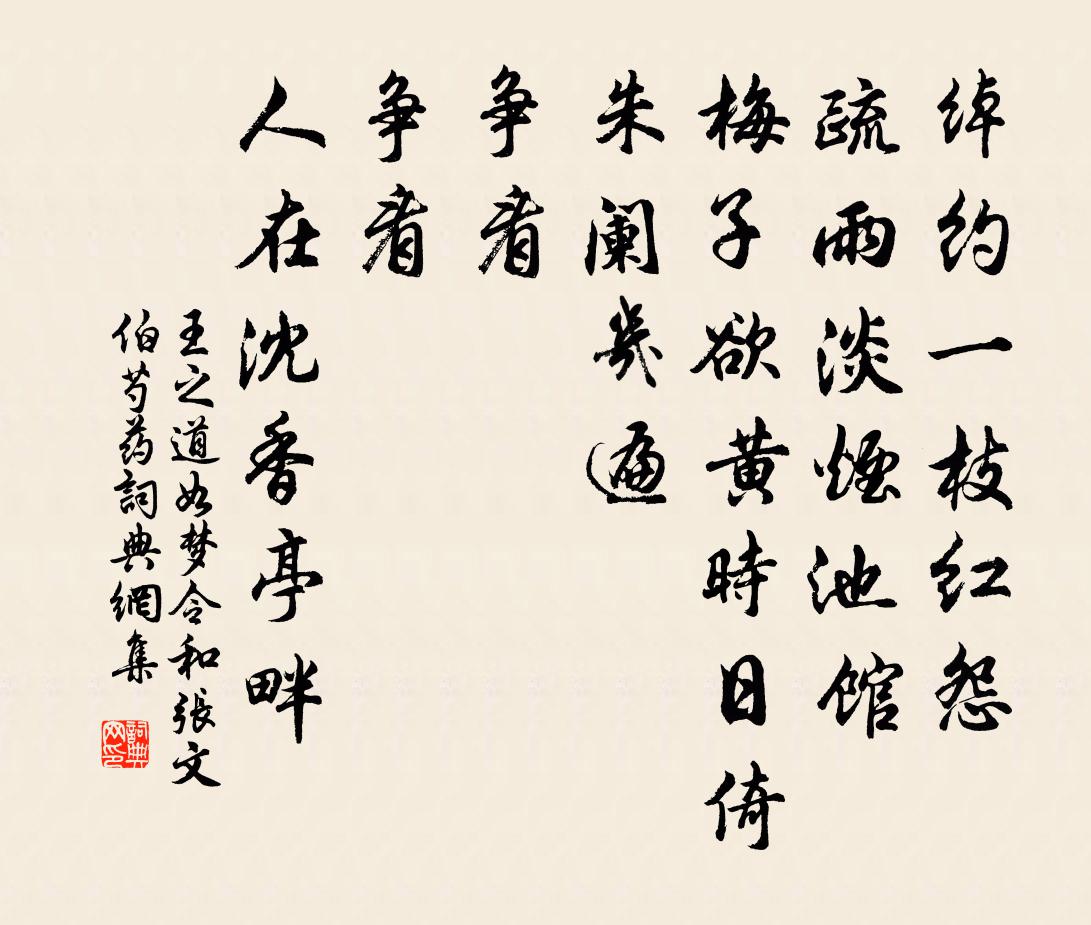 绰约一枝红怨
疏雨淡煙池馆
梅子欲黄時日倚
朱阑幾遍
争看
争看
人在沈香亭畔
王之道如梦令和張文
伯芍药詞典網集
詞典
网印